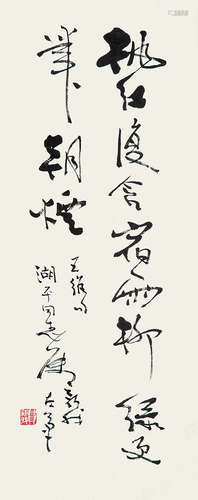 桃红復含宿雨柳綠更
帶朝煙
王維句
湖平同志屬